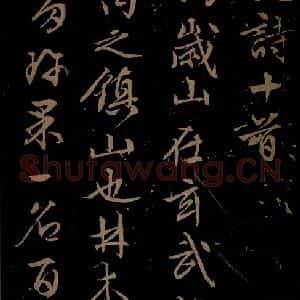 詩十首
歲山在玄武
内之鎮山也林木
多珎果一名百
Shufawang.CN